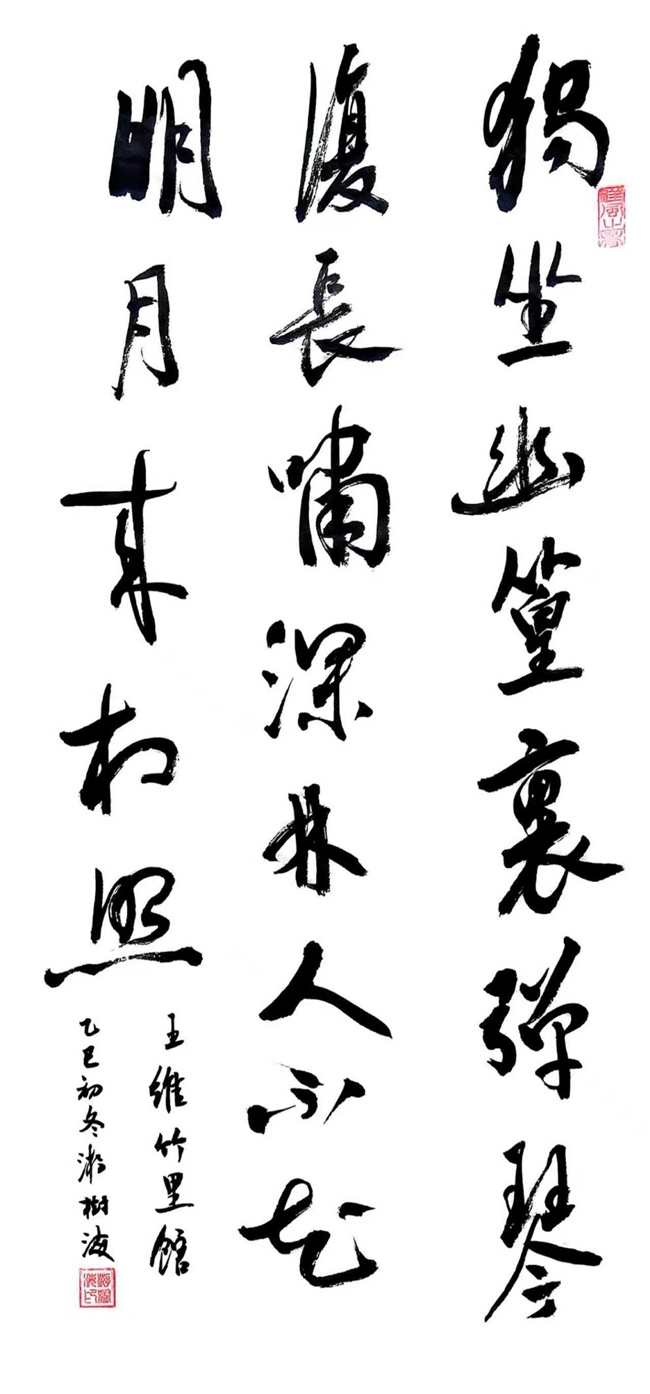 獨坐幽篁裏彈琴
復長嘯深林人不知
明月来相照
王維竹里館
乙巳初冬 樹海